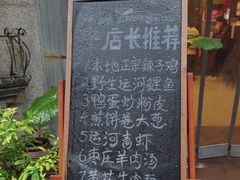 店长推荐
1本地正宗辣子鸡
2野生运河鲤鱼
3鸭蛋炒粉皮
4煎饼卷大葱
5运河青虾
6枣庄羊肉汤
7